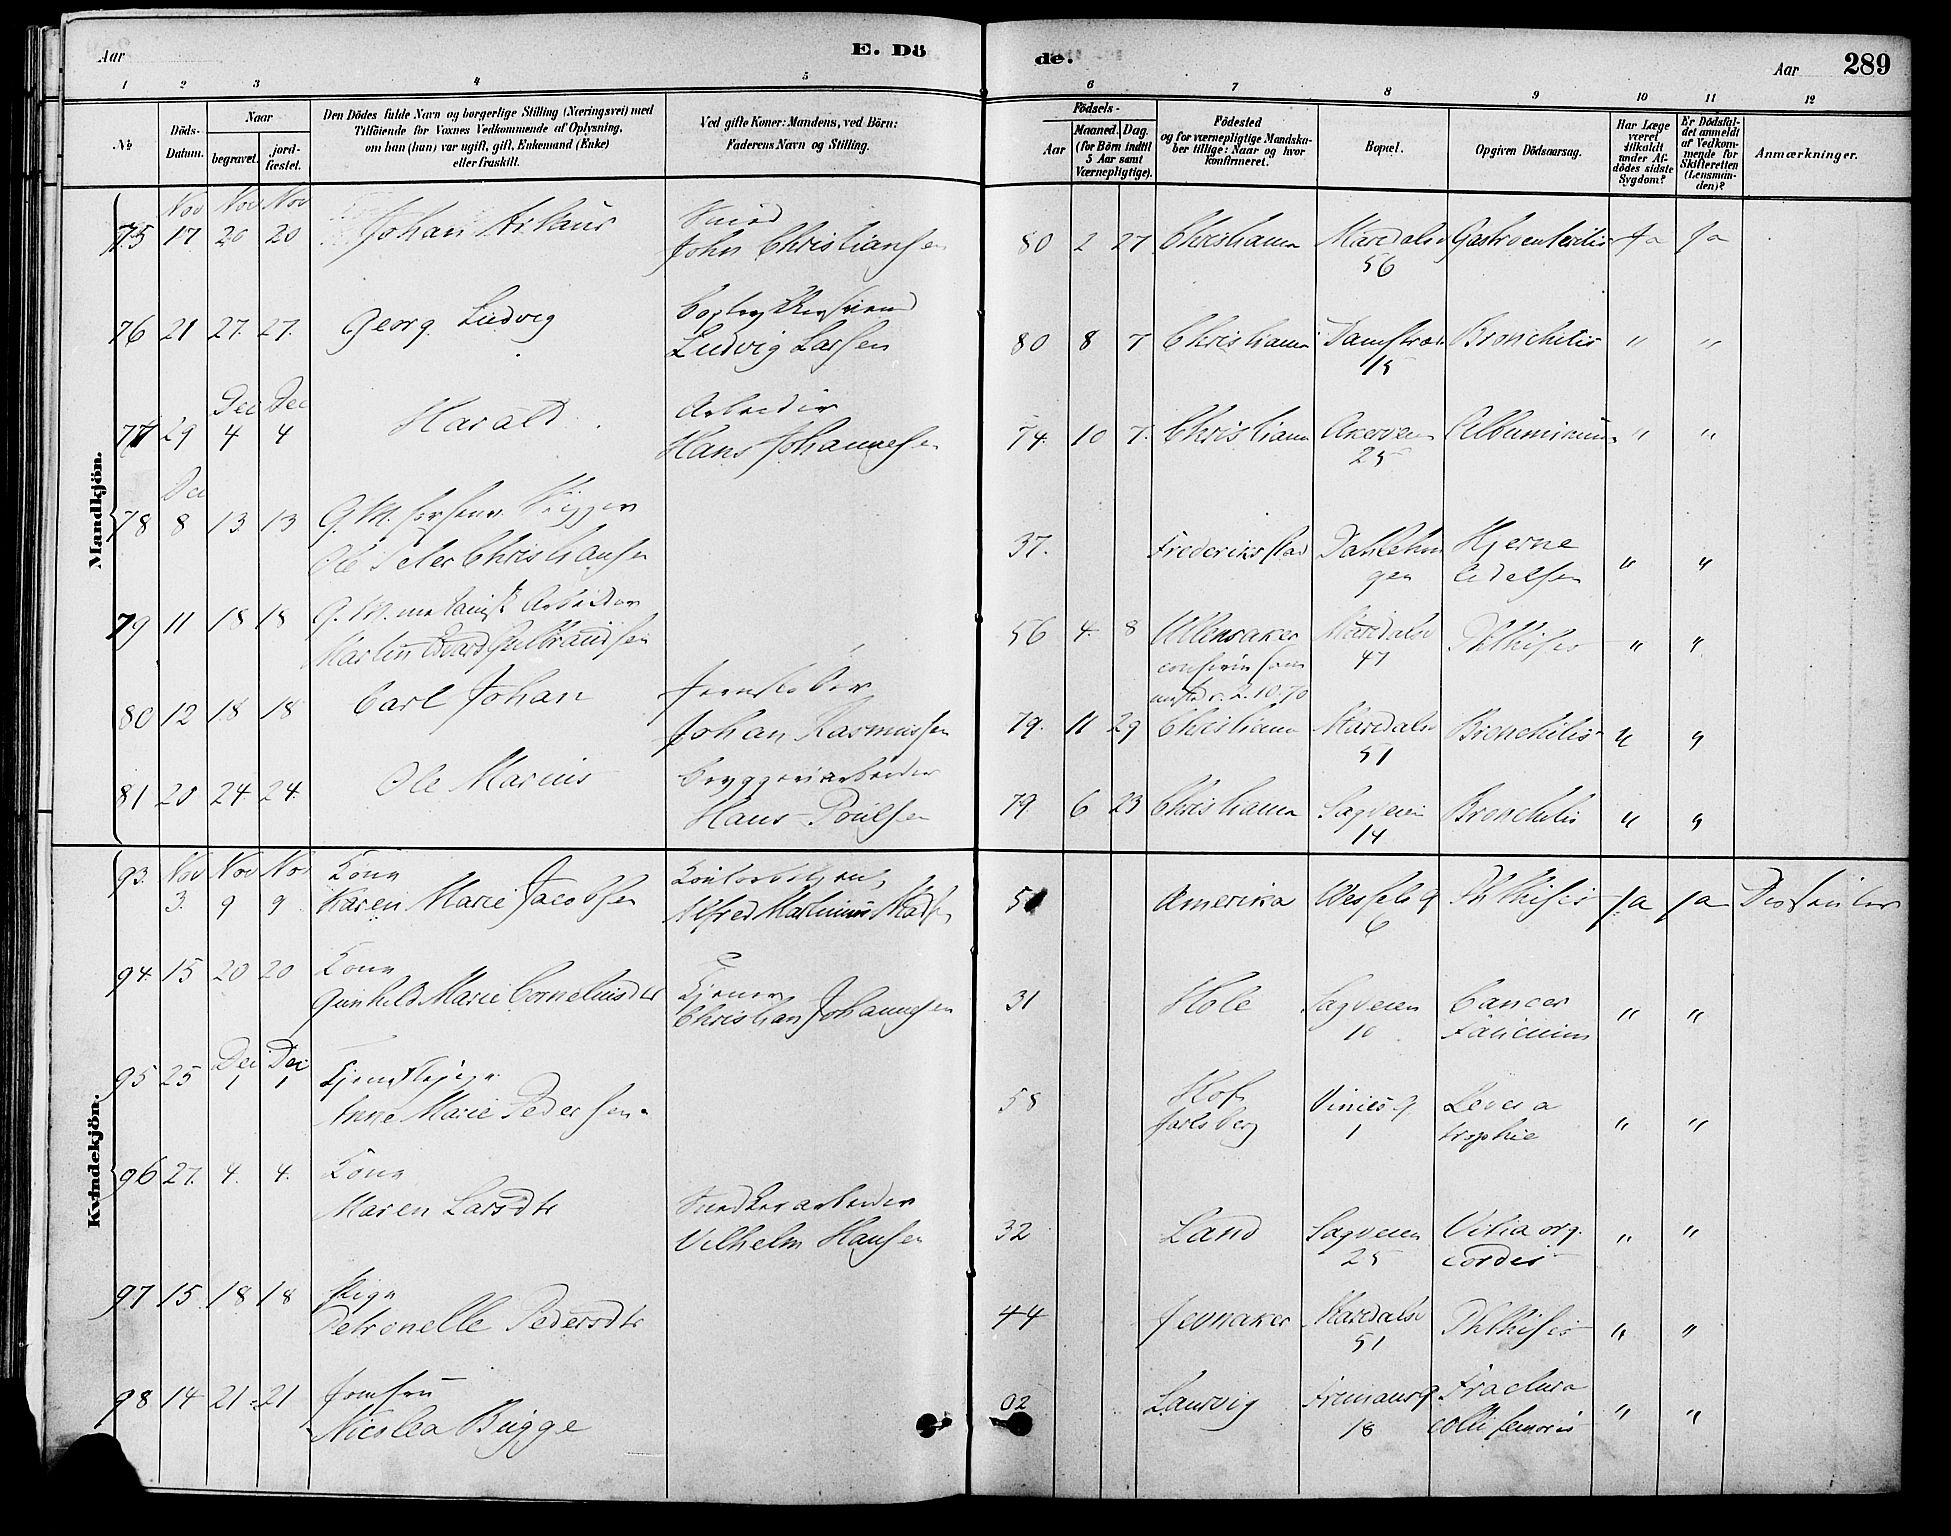 Aar E. Dö de. Aar 289
1 2 3 4 5 6 7 8 9 10 11 12
№
Döds-Datum.
Naar
begravet.
jordfæstet.
Den Dödes fulde Navn og borgerlige Stilling (Næringsvei) med
Tilföiende for Voxnes Vedkommende af Oplysning,
om han (hun) var ugift, gift, Enkemand (Enke)
eller fraskilt.
Ved gifte Koner: Mandens, ved Börn:
Faderens Navn og Stilling.
Födsels-
Aar
Maaned. Dag.
(for Börn indtil
5 Aar samt
Værnepligtige).
Födested
og for værnepligtige Mandska-
ber tillige: Naar og hvor
konfirmeret.
Bopæl.
Opgiven Dödsaarsag.
Har Læge
været
tilkaldt
under Af-
dödes sidste
Sygdom?
Er Dödsfal-
det anmeldt
af Vedkom-
mende for
Skifteretten
(Lensman-
den)?
Anmærkninger.
Mandkjön.
Nov Nov Nov
75 17 20 20 Johan Arthur Smed
John Christiansen 80 2 27 Christiania Maridalsv 56 Gastroenteritis Ja Ja
76 21 27. 27. Georg Ludvig
Ludvig Larsen 80 8 7 Christiania Damstræd 15 Bronchitis " "
Dec Dec
77 29 4 4 Harald Arbeider
Hans Johannesen 74. 10 7. Christiania Akerveien 25 " "
Dec
78 8 13 13 G. M.
Ole Peter Christiansen 37. Frederikstad Hjerne
lidelsen " "
79 11 18 18 G. M. Arbeider
Martin Edvard Gulbrandsen 56 4. 8 Ullensaker Maridalsv 47 Phthisis " "
2.10.70
80 12 18 18 Carl Johan
Johan Rasmussen 79. 11 29 Christiania Maridalsv 51 Bronchitis " "
81 20 24. 24. Ole Marius Bryggeriarbeider
Hans Poulsen 79. 6 23 Christiania Sagveien 14 Bronchitis " "
Kvindekjön.
93. Nov Nov Nov Kone
3. 9 9 Karen Marie Jacobsen Kontorbetjent
Alfred Amerika Wessels g 6 Phthisis Ja Ja Dissenter
94. 15 20 20 Kone
Gunhild Marie Corneliusdtr Tjener
Christian Johannesen 31 Hole Sagveien 10 Cancer " "
Dec Dec
95 25 1 1
Anne Marie Pedersen 58 Hof
Jarlsberg 1 Levera
trophie " "
96 27. 4. 4. Kone
Maren Larsdtr Snedkerarbeider
Vilhelm Hansen 32 Land Sagveien 25 Vitia org.
cordis " "
97 15. 18 18 Pige
Petronelle Pedersdtr 44 Jevnaker Maridalsv 51 Phthisis " "
98 14 21 21 Jomfru
Nicolea Bugge 02 Laurvig 18 Fractura
colli femoris " "